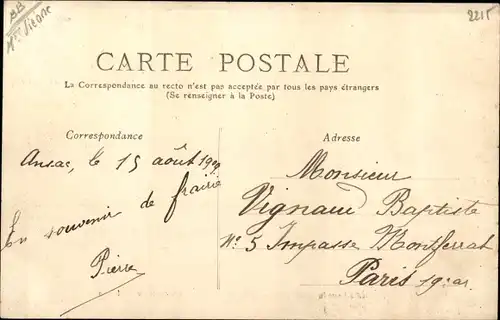 BB
Hte Vienne
2215
CARTE POSTALE
La Correspondance au recto n'est pas acceptée par tous les pays étrangers
(Se renseigner à la Poste)
Correspondance
Ansac, le 15 août 1907
En souvenir de frairie
Pierre
Adresse
Monsieur
Vignaud Baptiste
N° 5 Impasse Montferrat
Paris 19e ar.